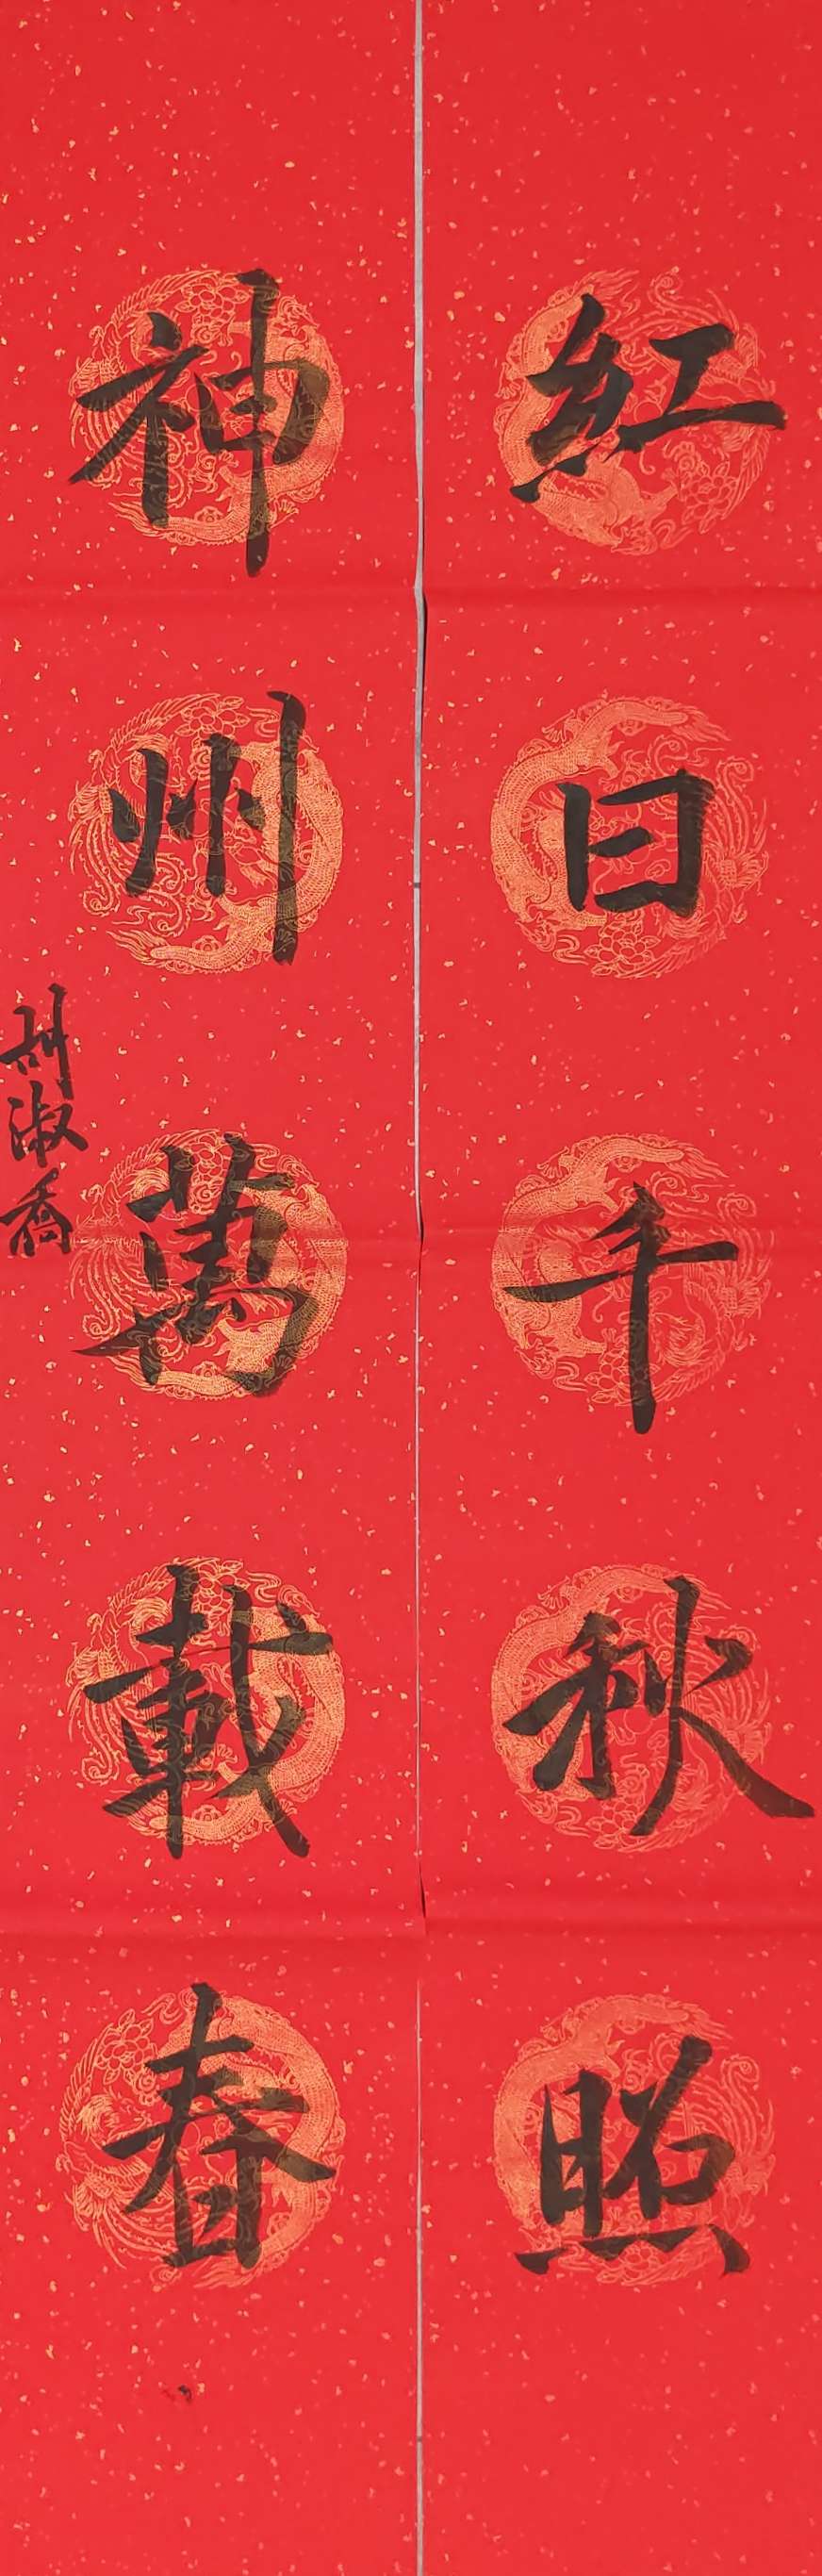 紅日千秋照
神州萬載春
胡淑喬